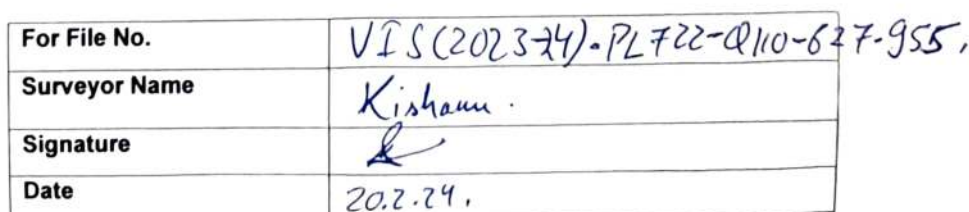 For File No. VIS(2023-24)-PL722-Q110-627-955,
Surveyor Name Kishanu.
Signature
Date 20.2.24.